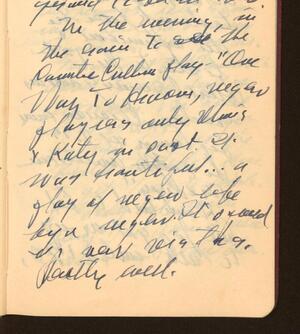 In the evening, in
the rain to see the
Countee Cullen play - "One
Way To Heaven, negro
players only Chris
& Katy in cast. It
was beautiful... a
play of negro life
by a negro. It
well.